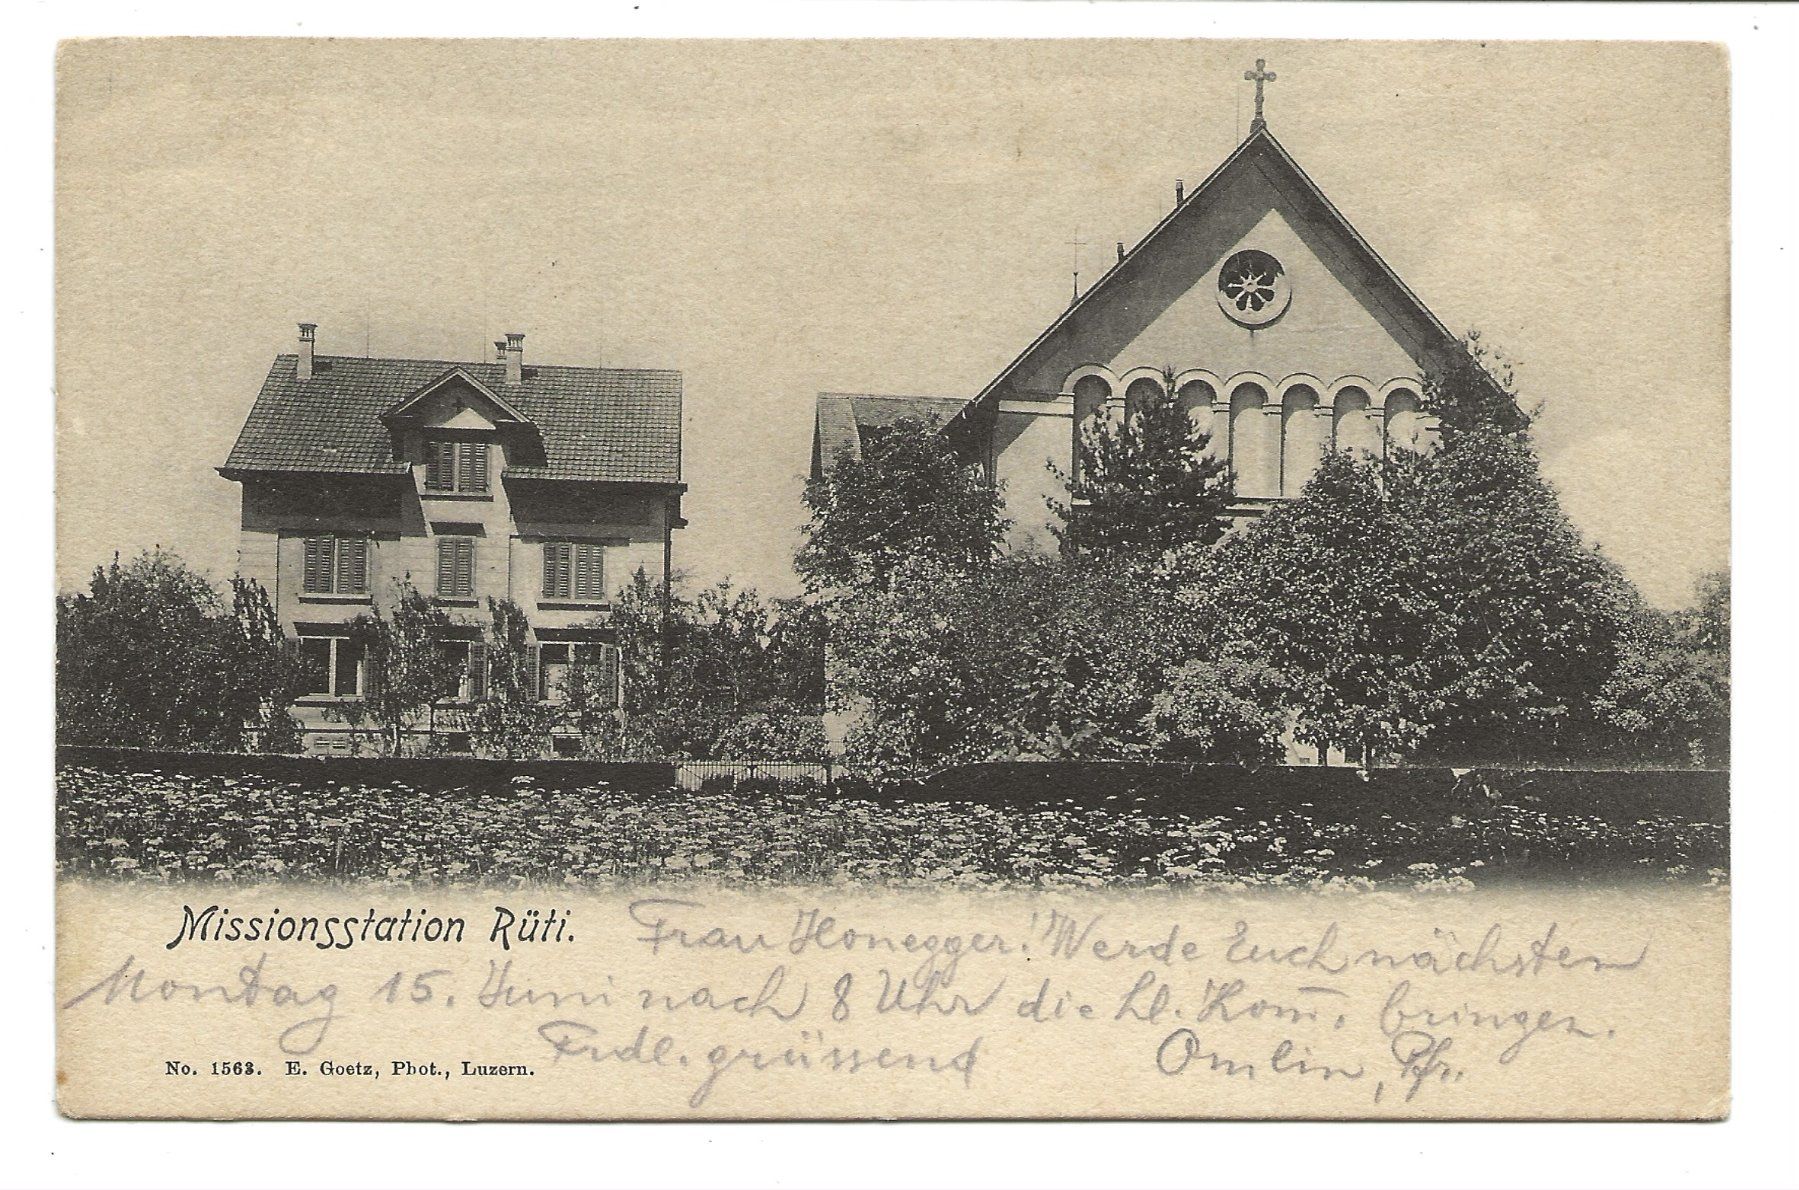 Missionsstation Rüti. Frau Honegger! Werde Euch nächsten
Montag 15. Juni nach 8 Uhr die hl. Kom̅. bringen.
Frdl. grüssend Omlin, Pfr.
No. 1563. E. Goetz, Phot., Luzern.